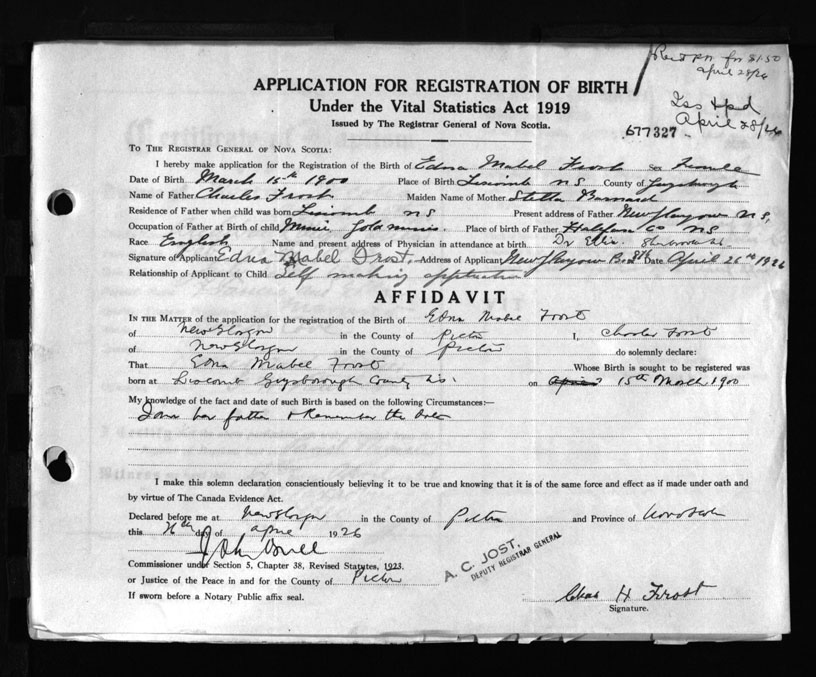 April 28/26
APPLICATION FOR REGISTRATION OF BIRTH
Under the Vital Statistics Act 1919
April 28/26
Issued by The Registrar General of Nova Scotia.
677327
To The Registrar General of Nova Scotia:
I hereby make application for the Registration of the Birth of Edna Mabel Frost Sex Female
Date of Birth March 15th 1900 Place of Birth Liscomb N S County of Guysborough
Name of Father Charles Frost Maiden Name of Mother Stella Barnard
Residence of Father when child was born Liscomb N S Present address of Father New Glasgow N S,
Occupation of Father at Birth of child Miner Gold mines. Place of birth of Father Halifax Co N S
Race English Name and present address of Physician in attendance at birth Dr
Signature of Applicant Edna Mabel Frost. Address of Applicant New Glasgow Date April 26th 1926
Relationship of Applicant to Child Self making application
AFFIDAVIT
In the Matter of the application for the registration of the Birth of Edna Mabel Frost
of New Glasgow in the County of Pictou I, Charles Frost
of New Glasgow in the County of Pictou do solemnly declare:
That Edna Mabel Frost Whose Birth is sought to be registered was
born at Liscomb Guysborough County N.S. on 15th March 1900
My knowledge of the fact and date of such Birth is based on the following Circumstances:—
I am her father & Remember the date
I make this solemn declaration conscientiously believing it to be true and knowing that it is of the same force and effect as if made under oath and
by virtue of The Canada Evidence Act.
Declared before me at New Glasgow in the County of Pictou and Province of Nova Scotia
this day of April 1926
A. C. JOST,
DEPUTY REGISTRAR GENERAL
Commissioner under Section 5, Chapter 38, Revised Statutes, 1923.
or Justice of the Peace in and for the County of Pictou
Chas H Frost
If sworn before a Notary Public affix seal.
Signature.